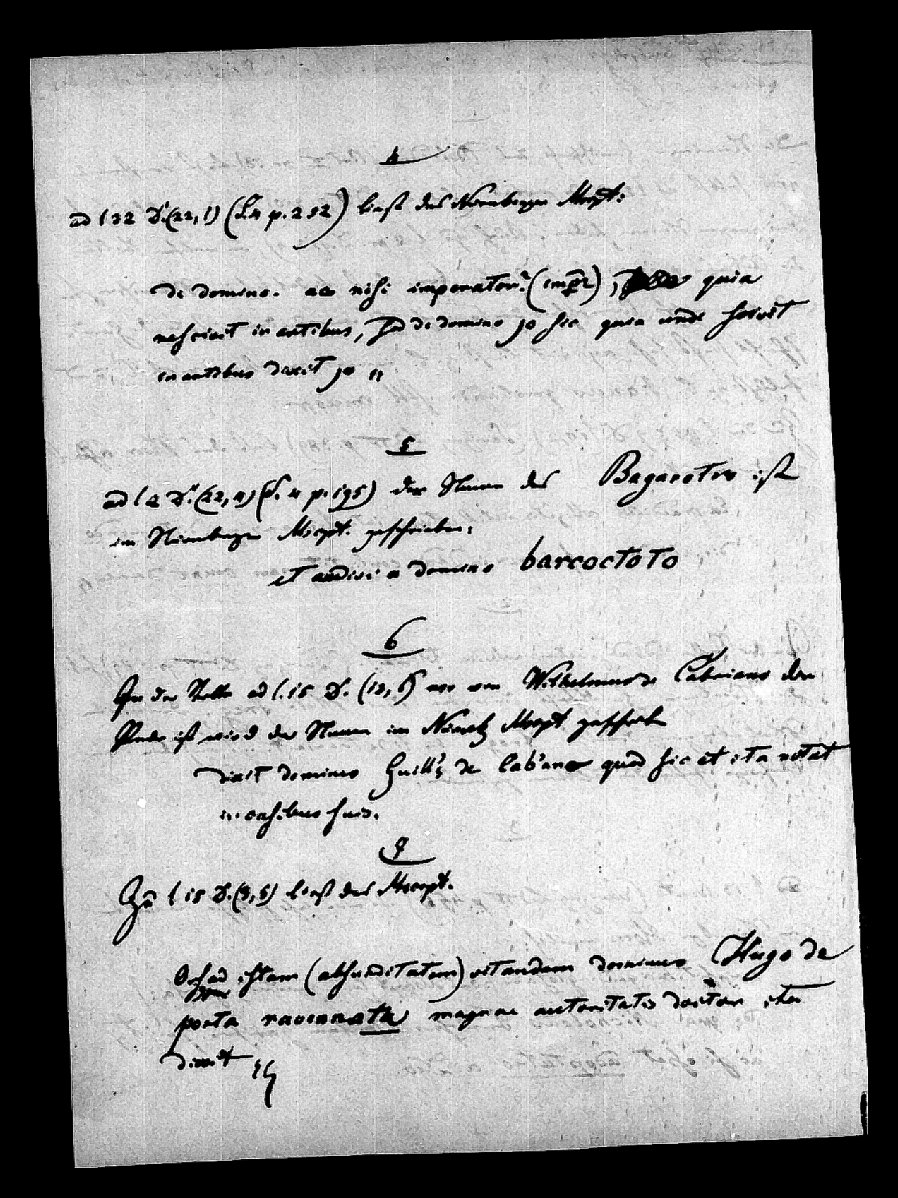 4
ad l 32 D.(22,1) (S. 4 p. 252) liest das Nürnberger Mscpt:
di domino. ac nisi imperator. (impr), quia
nescivit in artibus, sed di domino jo sic quia unde scivit
in artibus dixit jo "
5
ad l 2 D.(22,4) (S. 4 p. 195) der Name des Bagarotus ist
im Nürnberger Mscpt. geschrieben:
et audivi a domino barcoctoto
6
In der Stelle ad l. 15 D. (12,1) wo von Wilhelmus de Cabriano die
Rede ist wird der Namen im Nürnb Mscpt geschrieb
dixit dominus Guill's de Cab'ano quod sic et ita notat
in casibus suis.
7
Zu l 15 D.(3,5) liest das Mscrpt.
Sed ad istam (absurditatem) vitandam dominus Hugo de
porta ravennata magnae autoritatis doctor ita
dixit